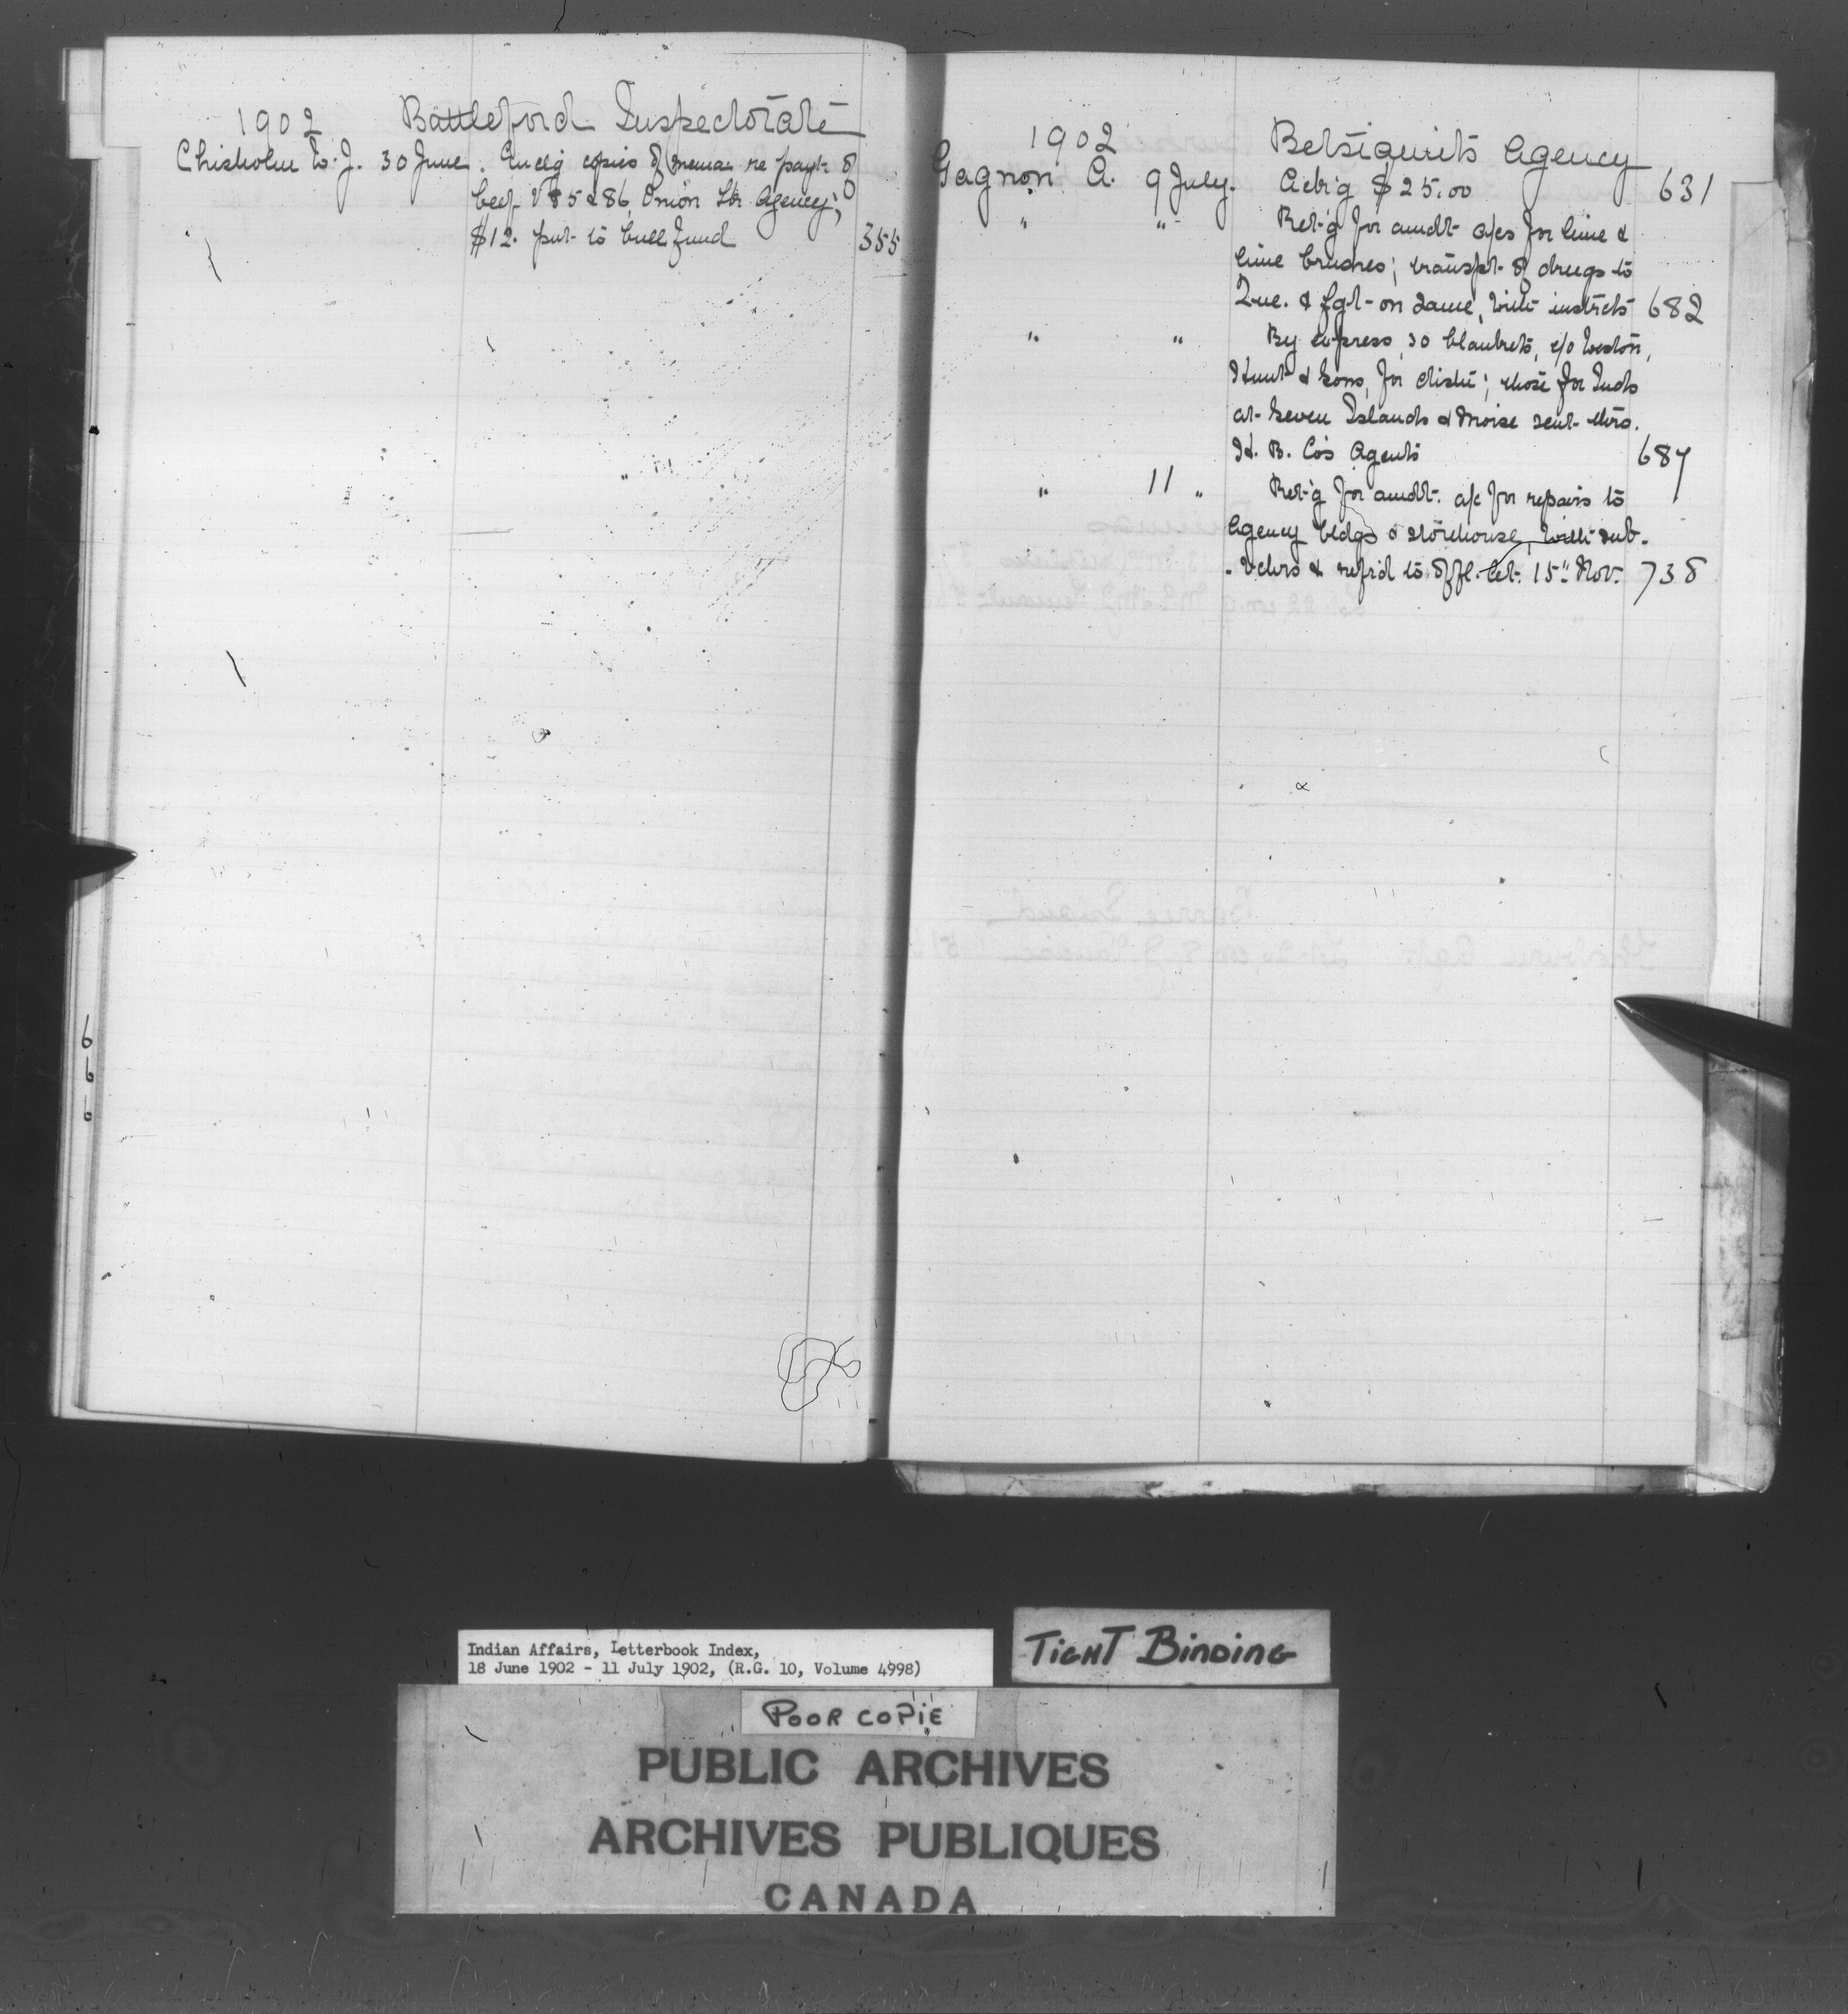 1902 Battleford Inspectorate
Chisholm W. J. 30 June. Encl'g copies of memas re payt of
beef V 85 & 86, Onion Lk Agency;
$12. put to bull fund 355
1902 Betsiamits Agency
Gagnon A. 9 July. Ackn'g $25.00 631
" " Ret'g for amdt a/cs for lime &
lime brushes; transpt of drugs to
Que. & fgt on same, with instrcts 682
" " By express, 30 blankets, c/o
Hunt & Sons, for distn; those for Inds
at Seven Islands & Moise sent thro.
H. B. Co's Agents 687
" 11 " Ret'g for amdt. a/c for repairs to
Agency bldgs & storehouse, with sub-
-vchrs & refrd to offl. let. 15" Nov. 738
660
Indian Affairs, Letterbook Index,
18 June 1902 - 11 July 1902, (R.G. 10, Volume 4998)
TIGHT BINDING
POOR COPIE
PUBLIC ARCHIVES
ARCHIVES PUBLIQUES
CANADA